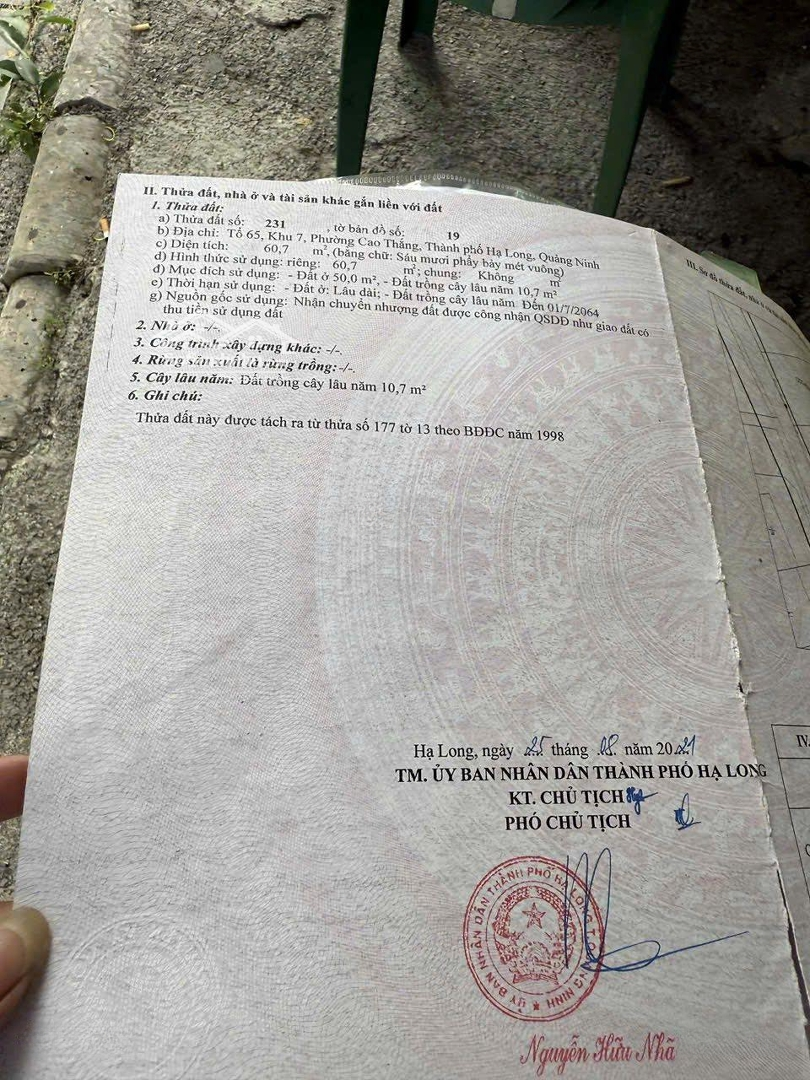 II. Thửa đất, nhà ở và tài sản khác gắn liền với đất
1. Thửa đất:
a) Thửa đất số: 231 , tờ bản đồ số: 19
b) Địa chỉ: Tổ 65, Khu 7, Phường Cao Thắng, Thành phố Hạ Long, Quảng Ninh
c) Diện tích: 60,7 m², (bằng chữ: Sáu mươi phẩy bảy mét vuông)
d) Hình thức sử dụng: riêng: 60,7 m²; chung: Không m²
đ) Mục đích sử dụng: - Đất ở 50,0 m², - Đất trồng cây lâu năm 10,7 m²
e) Thời hạn sử dụng: - Đất ở: Lâu dài; - Đất trồng cây lâu năm Đến 01/7/2064
g) Nguồn gốc sử dụng: Nhận chuyển nhượng đất được công nhận QSDĐ như giao đất có
thu tiền sử dụng đất
2. Nhà ở: -/-.
3. Công trình xây dựng khác: -/-.
4. Rừng sản xuất là rừng trồng: -/-.
5. Cây lâu năm: Đất trồng cây lâu năm 10,7 m²
6. Ghi chú:
Thửa đất này được tách ra từ thửa số 177 tờ 13 theo BĐĐC năm 1998
Hạ Long, ngày 25 tháng 08 năm 2021
TM. ỦY BAN NHÂN DÂN THÀNH PHỐ HẠ LONG
KT. CHỦ TỊCH
PHÓ CHỦ TỊCH
ỦY BAN NHÂN DÂN THÀNH PHỐ HẠ LONG
Nguyễn Hữu Nhã
III. Sơ đồ thửa đất, nhà ở
IV.